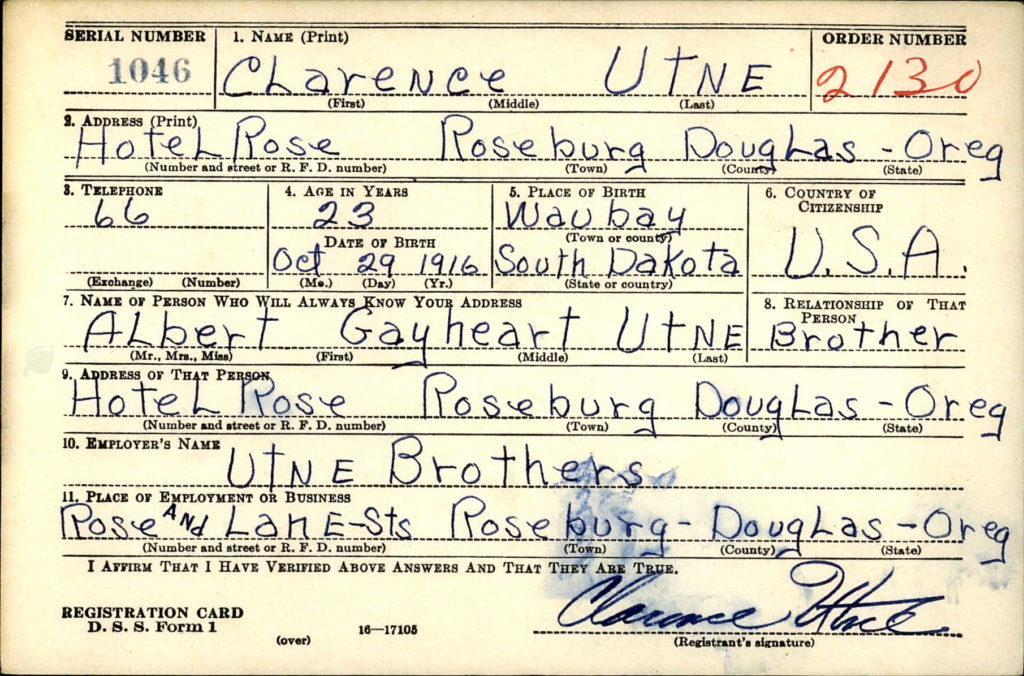 SERIAL NUMBER 1. NAME (Print) ORDER NUMBER
1046 Clarence Utne 2130
(First) (Middle) (Last)
2. ADDRESS (Print)
Hotel Rose Roseburg Douglas - Oreg
(Number and street or R. F. D. number) (Town) (County) (State)
3. TELEPHONE 4. AGE IN YEARS 5. PLACE OF BIRTH 6. COUNTRY OF CITIZENSHIP
66 23 Waubay
(Town or county)
DATE OF BIRTH U.S.A.
Oct 29 1916 South Dakota
(Exchange) (Number) (Mo.) (Day) (Yr.) (State or country)
7. NAME OF PERSON WHO WILL ALWAYS KNOW YOUR ADDRESS 8. RELATIONSHIP OF THAT PERSON
Albert Gayheart Utne Brother
(Mr., Mrs., Miss) (First) (Middle) (Last)
9. ADDRESS OF THAT PERSON
Hotel Rose Roseburg Douglas - Oreg
(Number and street or R. F. D. number) (Town) (County) (State)
10. EMPLOYER'S NAME
Utne Brothers
11. PLACE OF EMPLOYMENT OR BUSINESS
Rose and Lane-Sts Roseburg - Douglas - Oreg
(Number and street or R. F. D. number) (Town) (County) (State)
I AFFIRM THAT I HAVE VERIFIED ABOVE ANSWERS AND THAT THEY ARE TRUE.
Clarence Utne
REGISTRATION CARD
D. S. S. Form 1 16—17105
(over) (Registrant's signature)